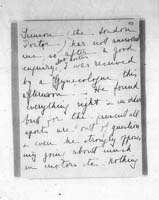 (the London
Doctor) has not answered
me so after a good
enquiry I was received
by a Gynecologue this
afternoon. He found
everything right & in order
but for the present all
sports are out of question
& even he strongly
my going about much
in motors etc nothing